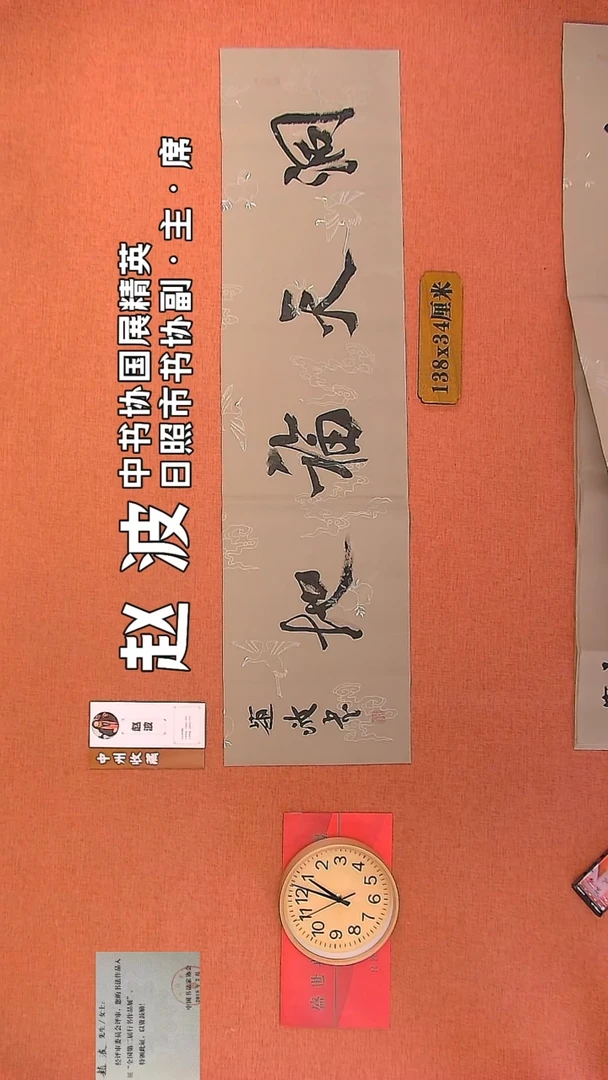 赵 波
中书协国展精英
日照市书协副·主·席
洞天福地
趙波书
138x34厘米
赵波
中州收藏
盛世
12
1
2
3
4
5
6
7
8
9
10
11
赵波 先生/女士:
经评审委员会评审，您的书法作品入
展“全国第二届行书作品展”，
特颁此证，以资鼓励!
中国书法家协会